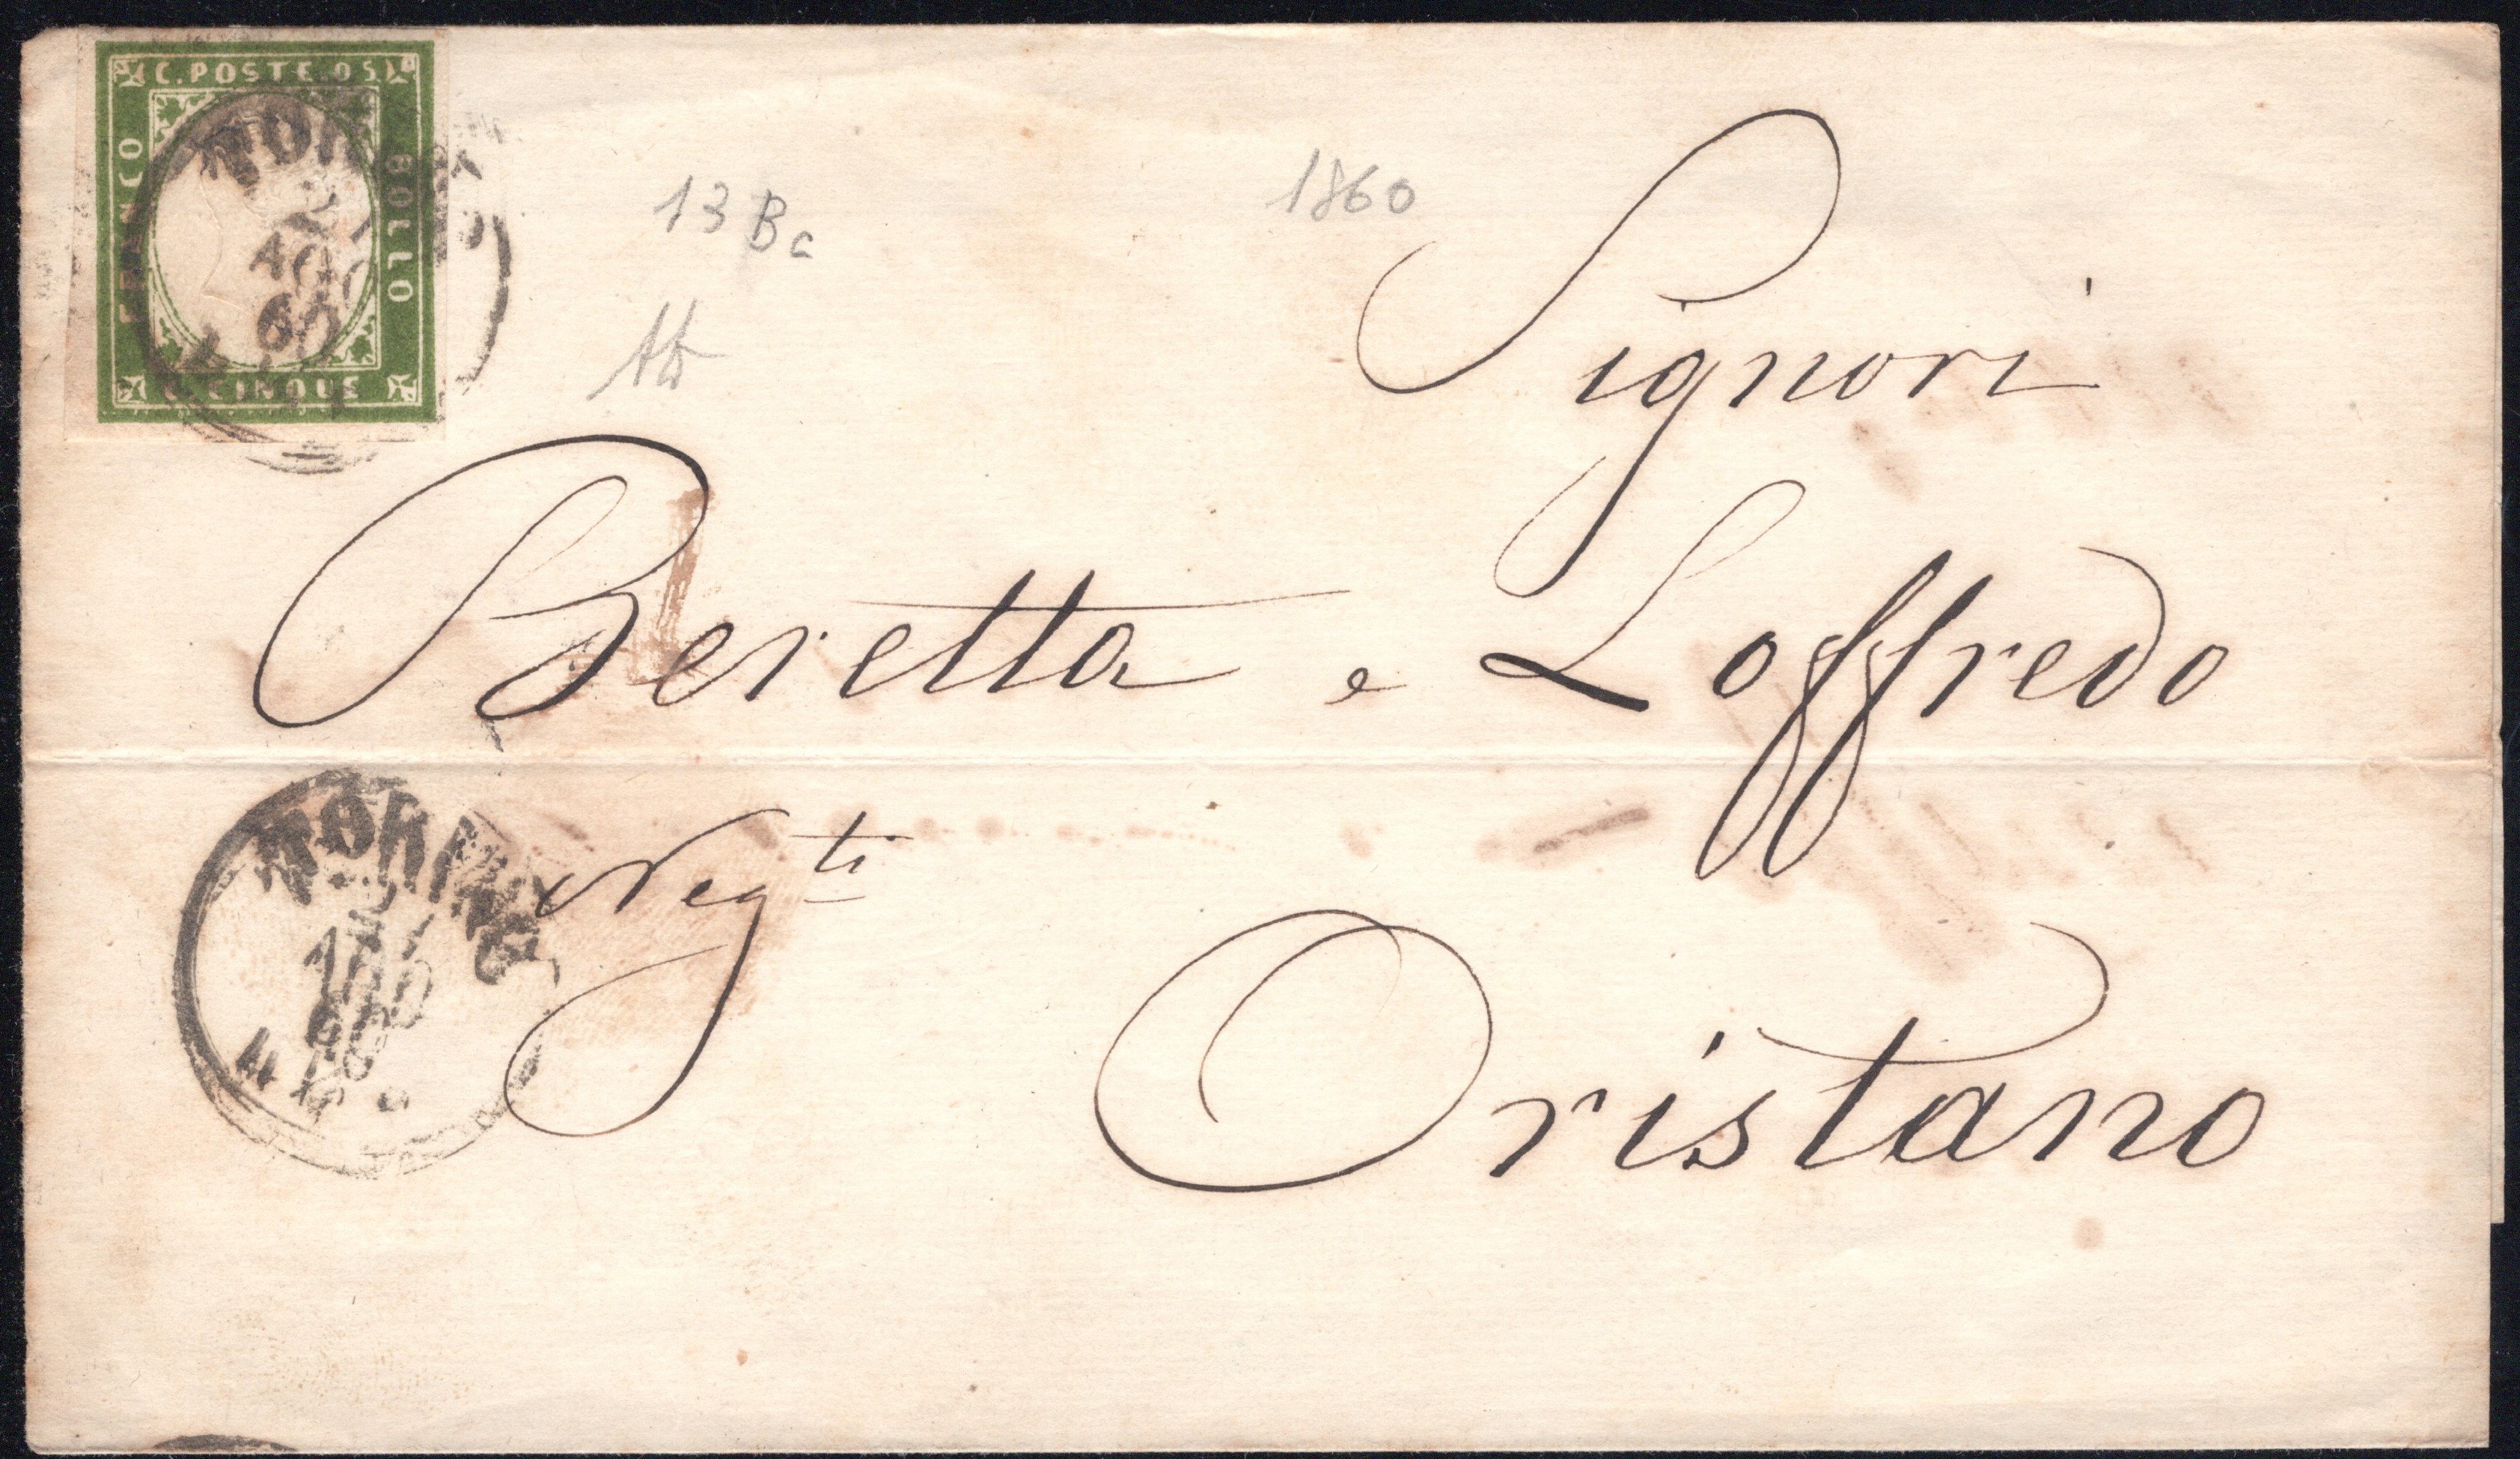 C. POSTE. 05
FRANCO
BOLLO
C. CINQUE
AGO
60
13 Bc
1860
Signori
Beretta e Loffredo
Neg.ti
Oristano
TORINO
AGO
60
4